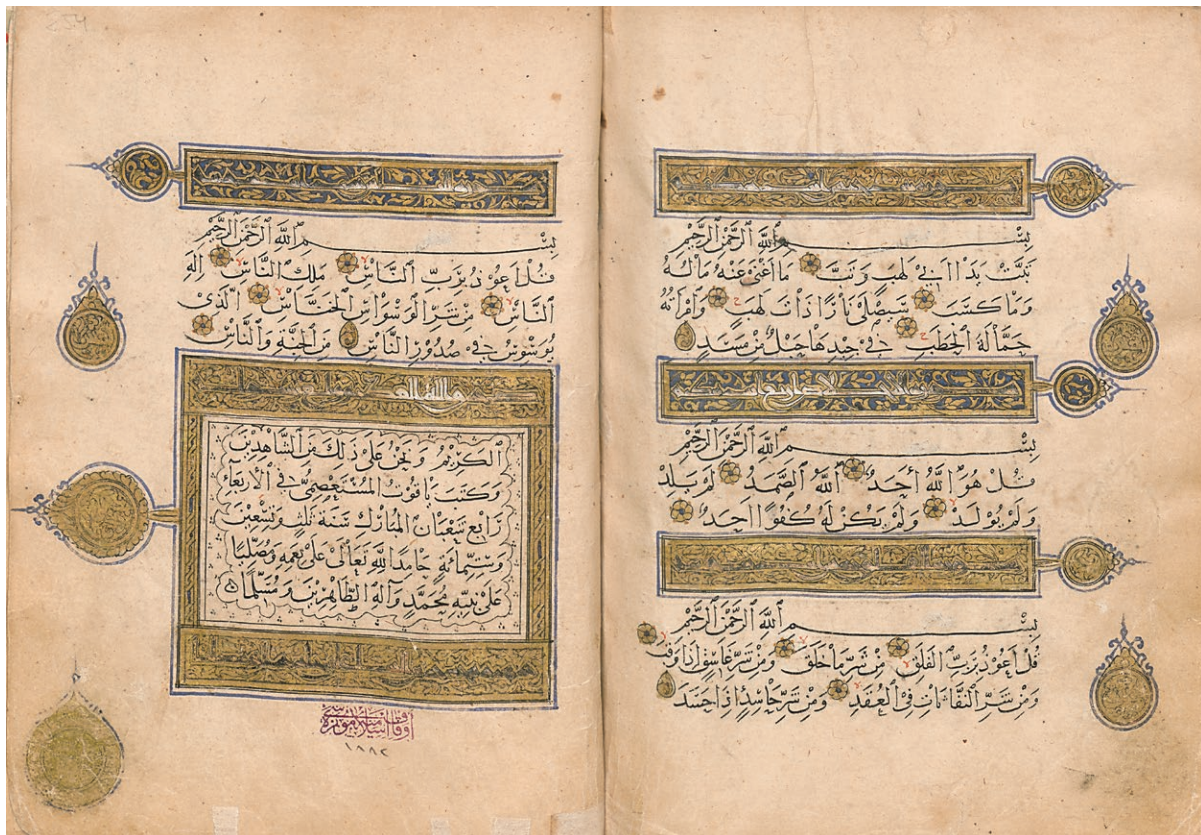 بِسْمِ ٱللَّهِ ٱلرَّحْمٰنِ ٱلرَّحِيْمِ
تَبَّتْ يَدَا اَبِيْ لَهَبٍ وَتَبَّ مَا اَغْنٰى عَنْهُ مَالُهُ
وَمَا كَسَبَ سَيَصْلٰى نَارًا ذَاتَ لَهَبٍ وَامْرَاَتُهُ
حَمَّالَةَ الْحَطَبِ فِيْ جِيْدِهَا حَبْلٌ مِنْ مَسَدٍ
بِسْمِ ٱللَّهِ ٱلرَّحْمٰنِ ٱلرَّحِيْمِ
قُلْ هُوَ ٱللَّهُ اَحَدٌ ٱللَّهُ ٱلصَّمَدُ لَمْ يَلِدْ
وَلَمْ يُوْلَدْ وَلَمْ يَكُنْ لَهُ كُفُوًا اَحَدٌ
بِسْمِ ٱللَّهِ ٱلرَّحْمٰنِ ٱلرَّحِيْمِ
قُلْ اَعُوْذُ بِرَبِّ الْفَلَقِ مِنْ شَرِّ مَا خَلَقَ وَمِنْ شَرِّ غَاسِقٍ اِذَا وَقَبَ
وَمِنْ شَرِّ النَّفَّاثَاتِ فِي الْعُقَدِ وَمِنْ شَرِّ حَاسِدٍ اِذَا حَسَدَ
بِسْمِ ٱللَّهِ ٱلرَّحْمٰنِ ٱلرَّحِيْمِ
قُلْ اَعُوْذُ بِرَبِّ النَّاسِ مَلِكِ النَّاسِ اِلٰهِ
النَّاسِ مِنْ شَرِّ الْوَسْوَاسِ الْخَنَّاسِ الَّذِيْ
يُوَسْوِسُ فِيْ صُدُوْرِ النَّاسِ مِنَ الْجِنَّةِ وَالنَّاسِ
الْكَرِيْمُ وَنَحْنُ عَلٰى ذٰلِكَ مِنَ الشَّاهِدِيْنَ
وَكَتَبَ يَاقُوْتُ الْمُسْتَعْصِمِيُّ فِي الْاَرْبِعَاءِ
رَابِعَ شَعْبَانَ الْمُبَارَكِ سَنَةَ ثَلٰثٍ وَتِسْعِيْنَ
وَسِتِّمِائَةٍ حَامِدًا لِلّٰهِ تَعَالٰى عَلٰى نِعَمِهِ وَمُصَلِّيًا
عَلٰى نَبِيِّهِ مُحَمَّدٍ وَآلِهِ الطَّاهِرِيْنَ وَمُسَلِّمًا
اوقاف اسلاميه موزه سى